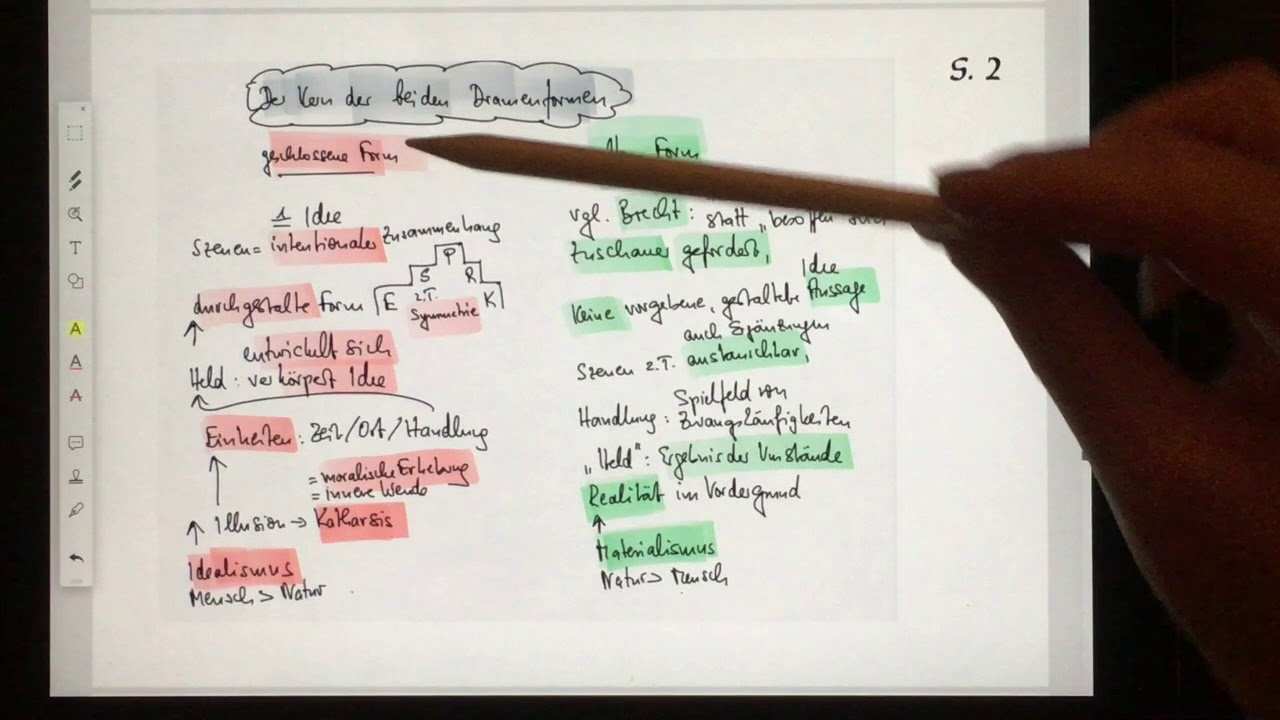 S. 2
Der Kern der beiden Dramenformen
geschlossene Form
1 Idee
Szenen = intentionaler Zusammenhang
durchgestalte Form
E S P R K
z.T.
Symmetrie
entwickelt sich
Held: verkörpert Idee
Einheiten: Zeit/Ort/Handlung
= moralische Erhebung
= innere Wende
Illusion → Katharsis
Idealismus
Mensch > Natur
Form
vgl. Brecht: statt „besoffen
Zuschauer gefordert,
Idee
Keine vorgebene, gestaltete Aussage
auch Ergänzungen
Szenen z.T. austauschbar,
Spielfeld von
Handlung: Zwangsläufigkeiten
„Held": Ergebnis der Umstände
Realität im Vordergrund
Materialismus
Natur > Mensch
T
A
A
A